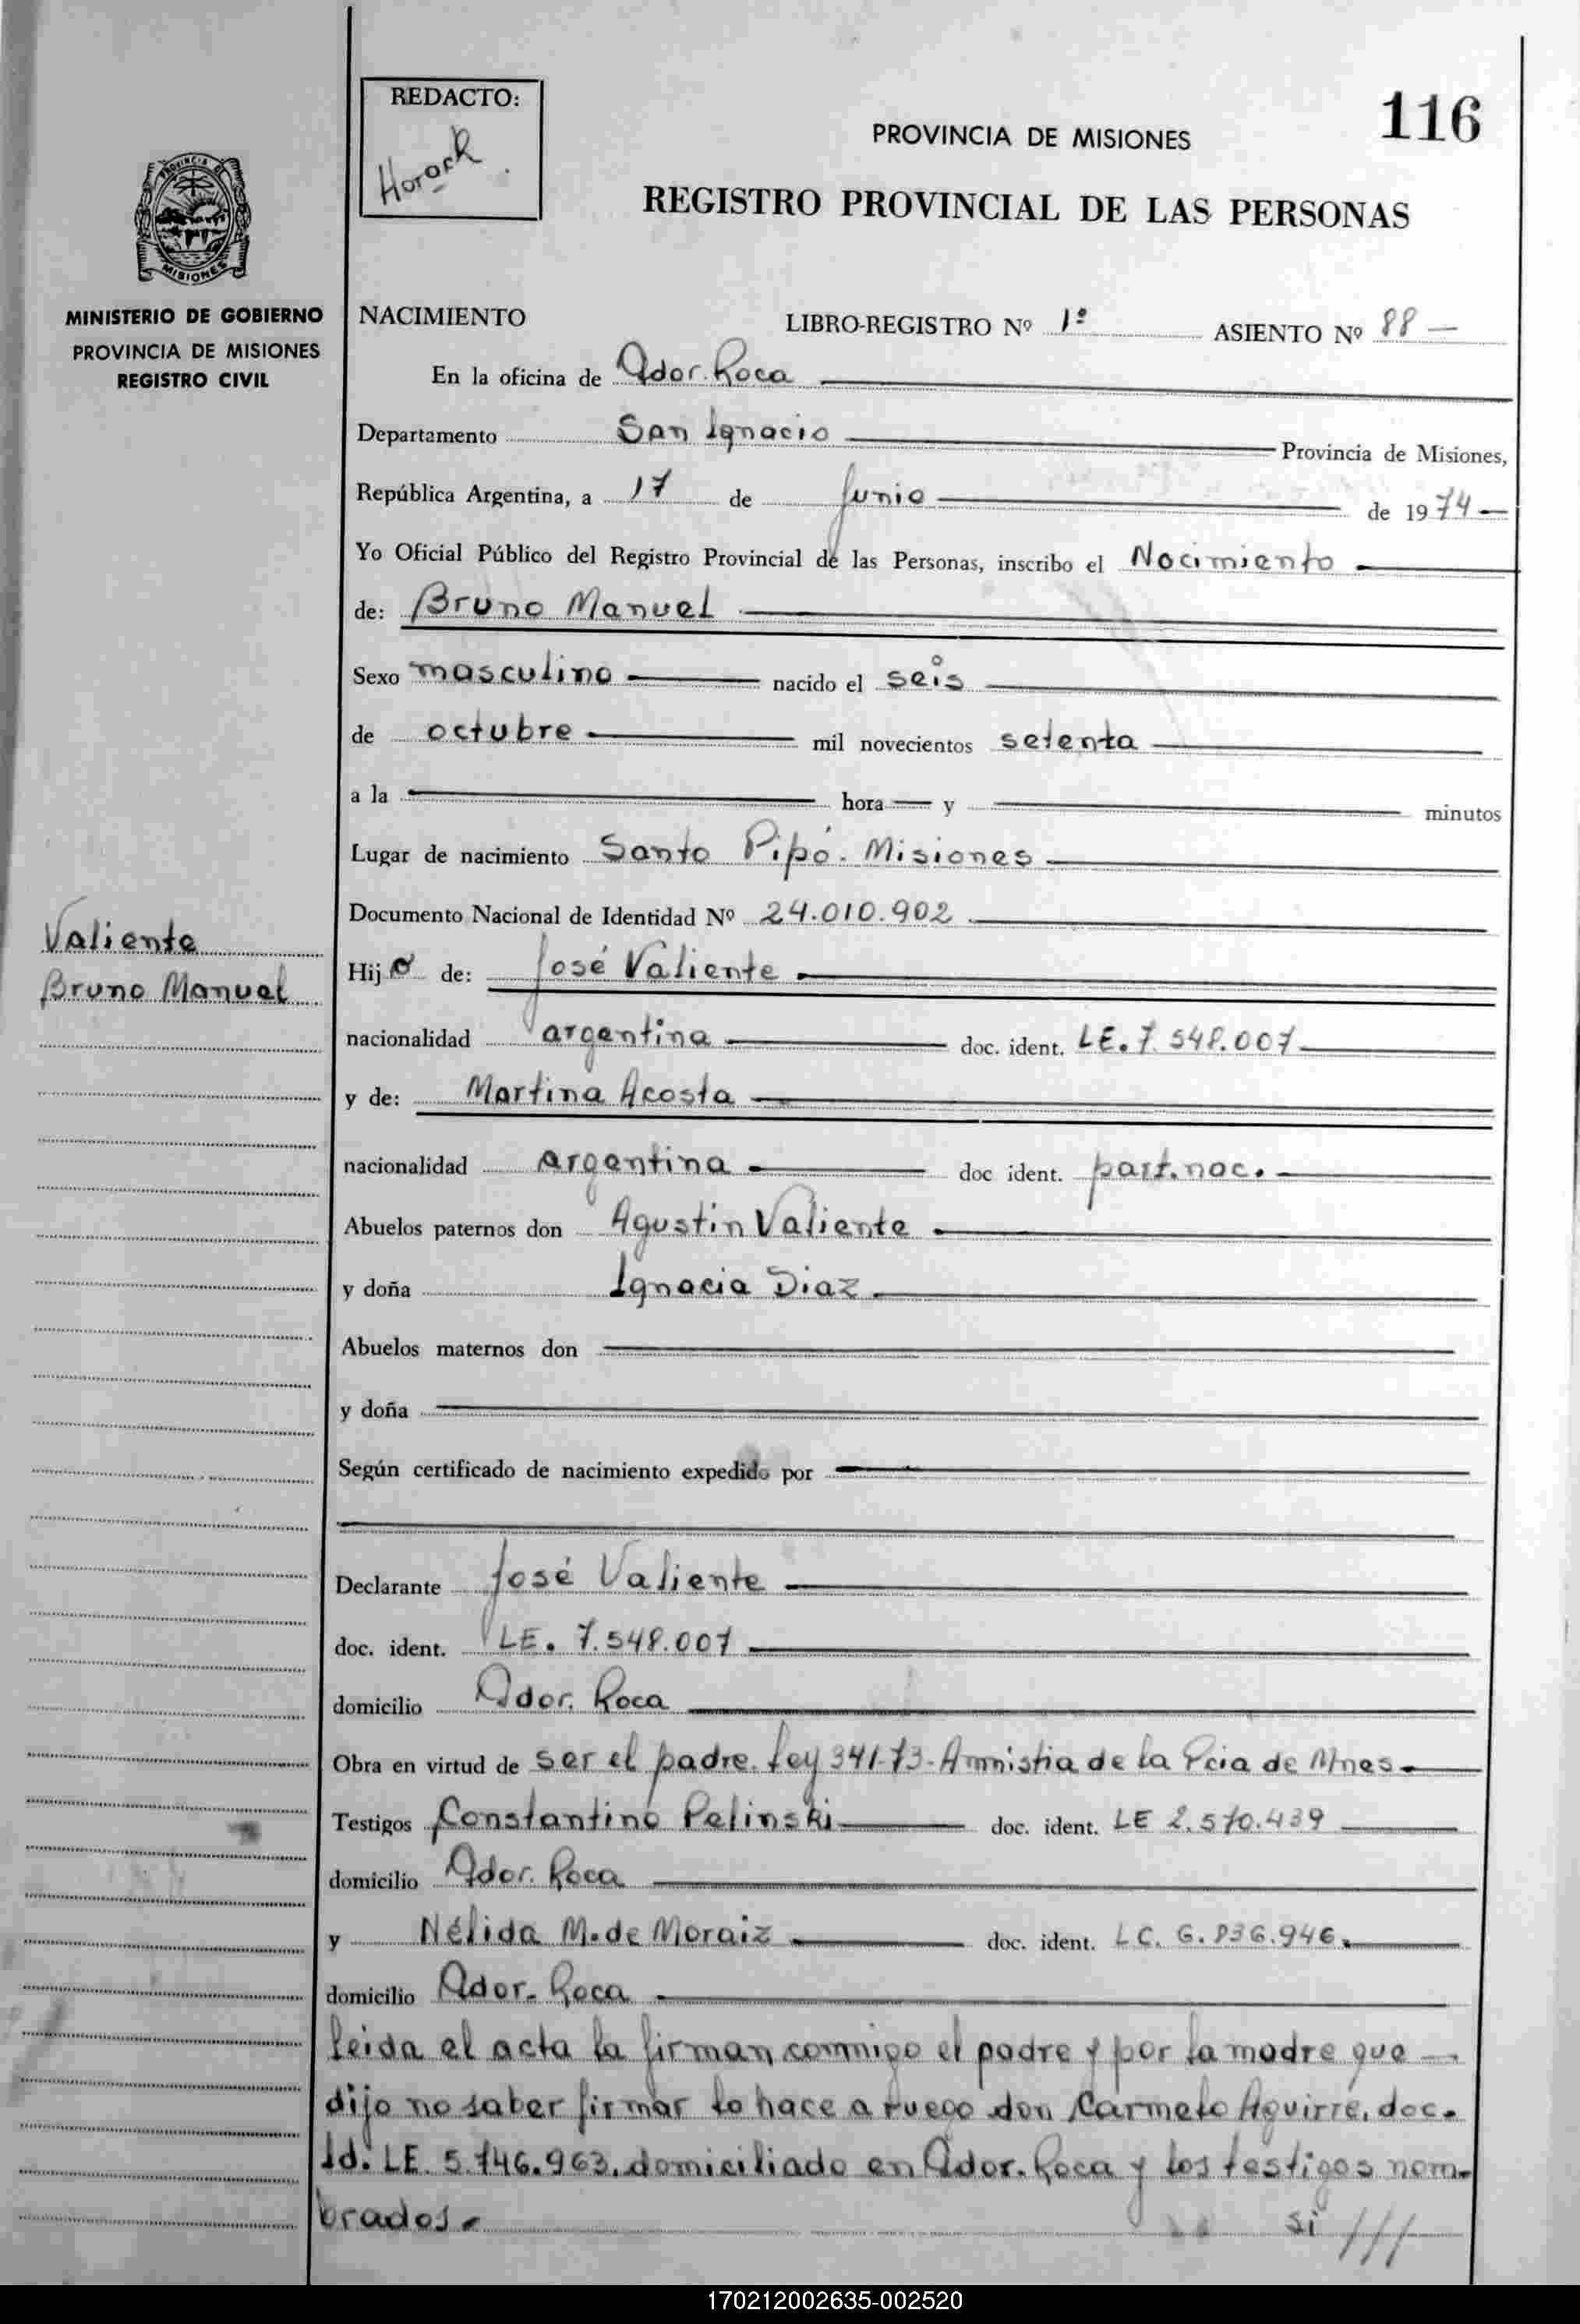 REDACTO:
Horack
PROVINCIA DE MISIONES
116
REGISTRO PROVINCIAL DE LAS PERSONAS
PROVINCIA DE
MISIONES
MINISTERIO DE GOBIERNO
PROVINCIA DE MISIONES
REGISTRO CIVIL
NACIMIENTO LIBRO-REGISTRO Nº 1º ASIENTO Nº 88
En la oficina de Gdor. Roca
Departamento San Ignacio Provincia de Misiones,
República Argentina, a 17 de Junio de 1974
Yo Oficial Público del Registro Provincial de las Personas, inscribo el Nacimiento
de: Bruno Manuel
Sexo masculino nacido el seis
de octubre mil novecientos setenta
a la hora y minutos
Lugar de nacimiento Santo Pipó. Misiones
Documento Nacional de Identidad Nº 24.010.902
Valiente
Bruno Manuel
Hijo de: José Valiente
nacionalidad argentina doc. ident. LE. 7.548.007
y de: Martina Acosta
nacionalidad argentina doc ident. part. nac.
Abuelos paternos don Agustin Valiente
y doña Ignacia Diaz
Abuelos maternos don
y doña
Según certificado de nacimiento expedido por
Declarante José Valiente
doc. ident. LE. 7.548.007
domicilio Gdor. Roca
Obra en virtud de ser el padre. Ley 341-73-Amnistia de la Pcia de Mnes.
Testigos Constantino Pelinski doc. ident. LE 2.570.439
domicilio Gdor. Roca
y Nélida M. de Moraiz doc. ident. LC. 6.836.946.
domicilio Gdor. Roca
Leida el acta la firman conmigo el padre y por la madre que
dijo no saber firmar lo hace a ruego don Carmelo Aguirre, doc.
Id. LE. 5.746.963, domiciliado en Gdor. Roca y los testigos nom-
brados. si ///
170212002635-002520